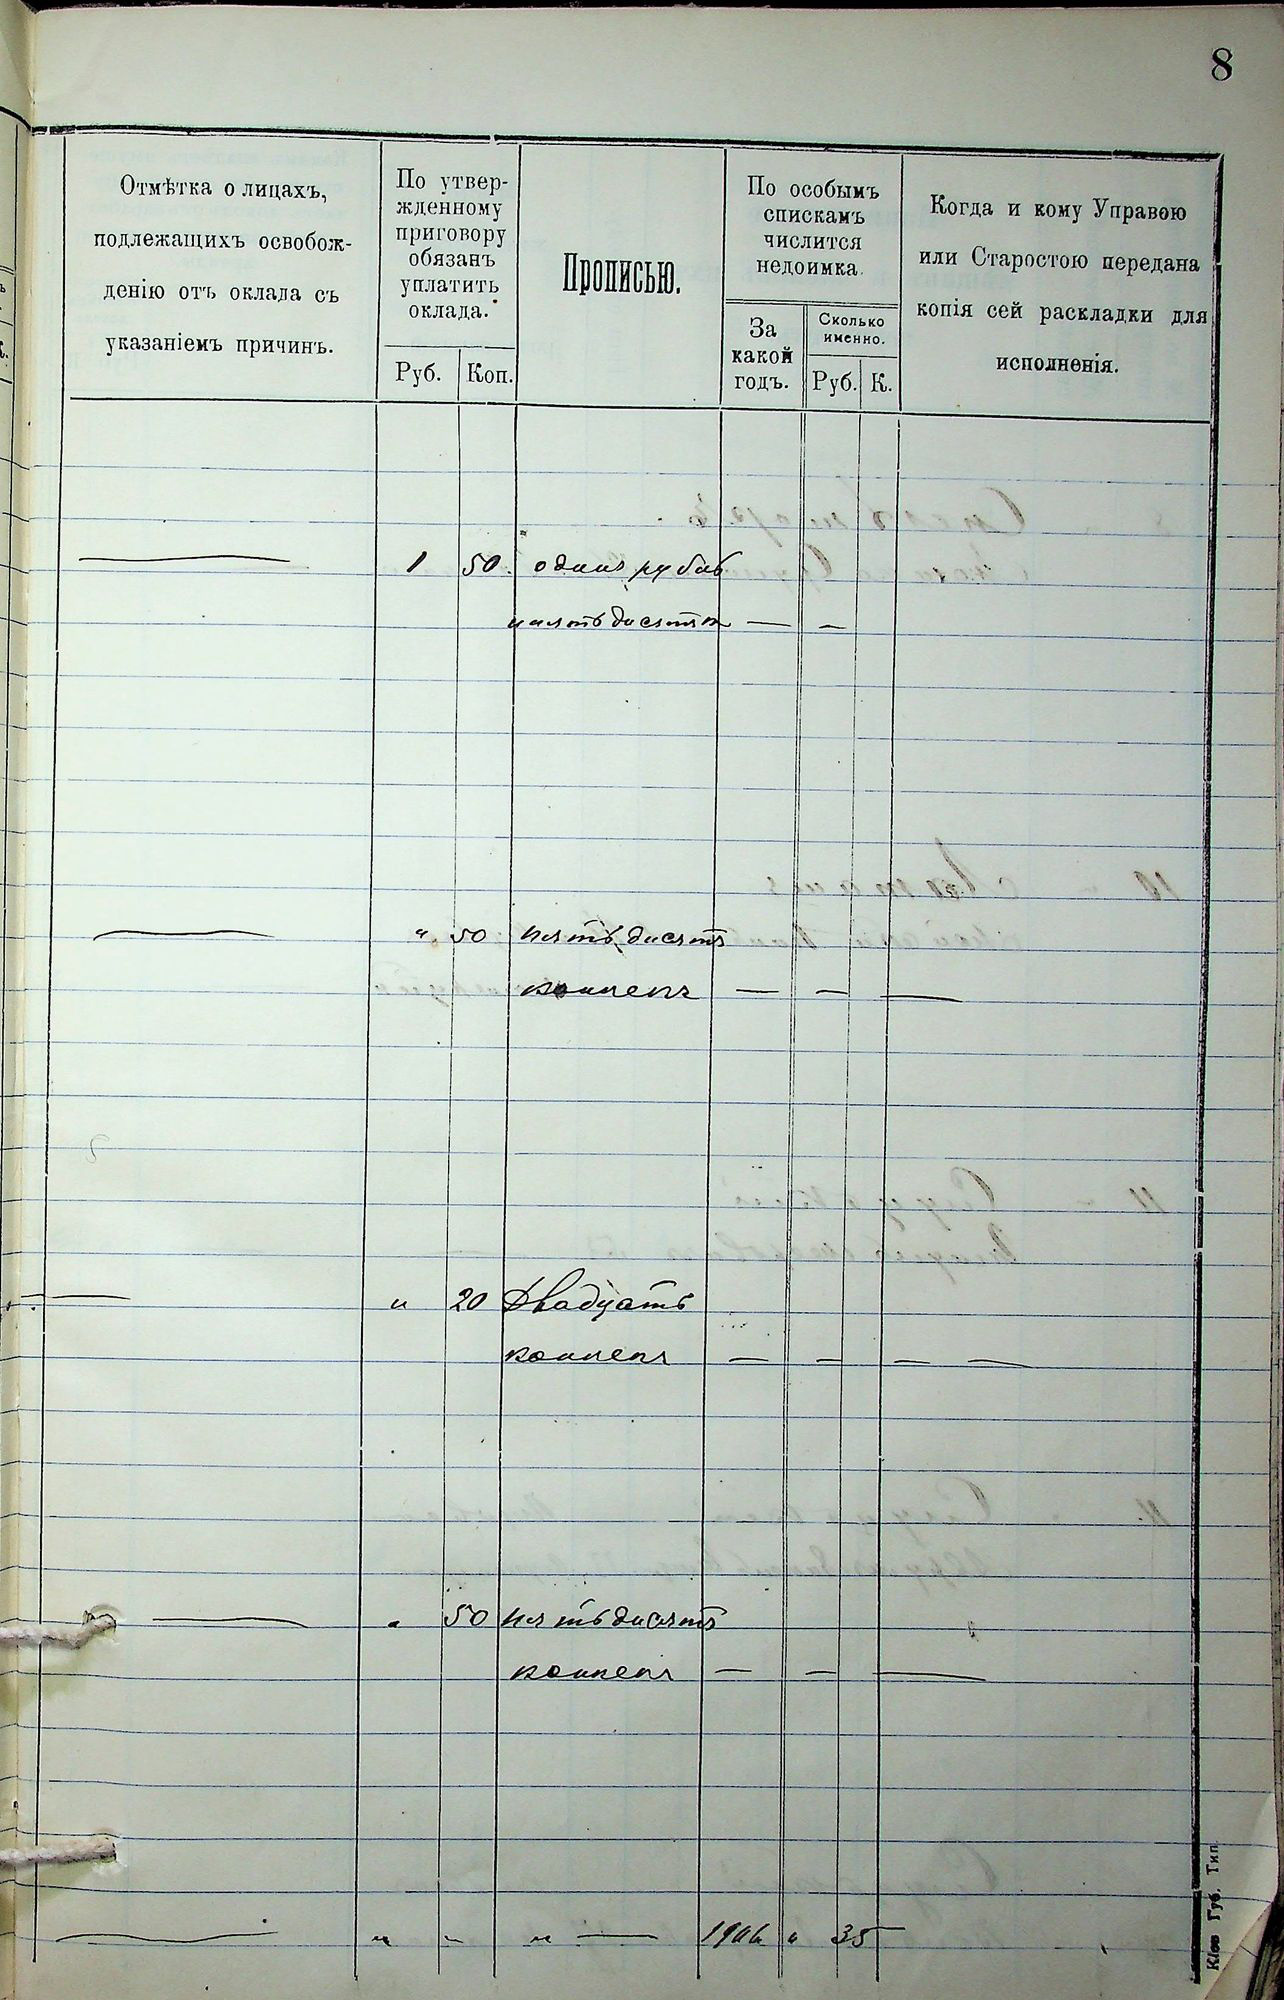 8
Отмѣтка о лицахъ,
подлежащихъ освобож-
денію отъ оклада съ
указаніемъ причинъ.
По утвер-
жденному
приговору
обязанъ
уплатить
оклада.
Руб. Коп.
Прописью.
По особымъ
спискамъ
числится
недоимка.
За
какой
годъ.
Сколько
именно.
Руб. К.
Когда и кому Управою
или Старостою передана
копія сей раскладки для
исполненія.
— 1 50 одинъ рубль
пятьдесятъ — —
— " 50 пятьдесятъ
копѣекъ — — —
— " 20 Двадцать
копѣекъ — — — —
— " 50 пятьдесятъ
копѣекъ — — —
— " " " — 1906 " 35
Кіев Губ. Тип.